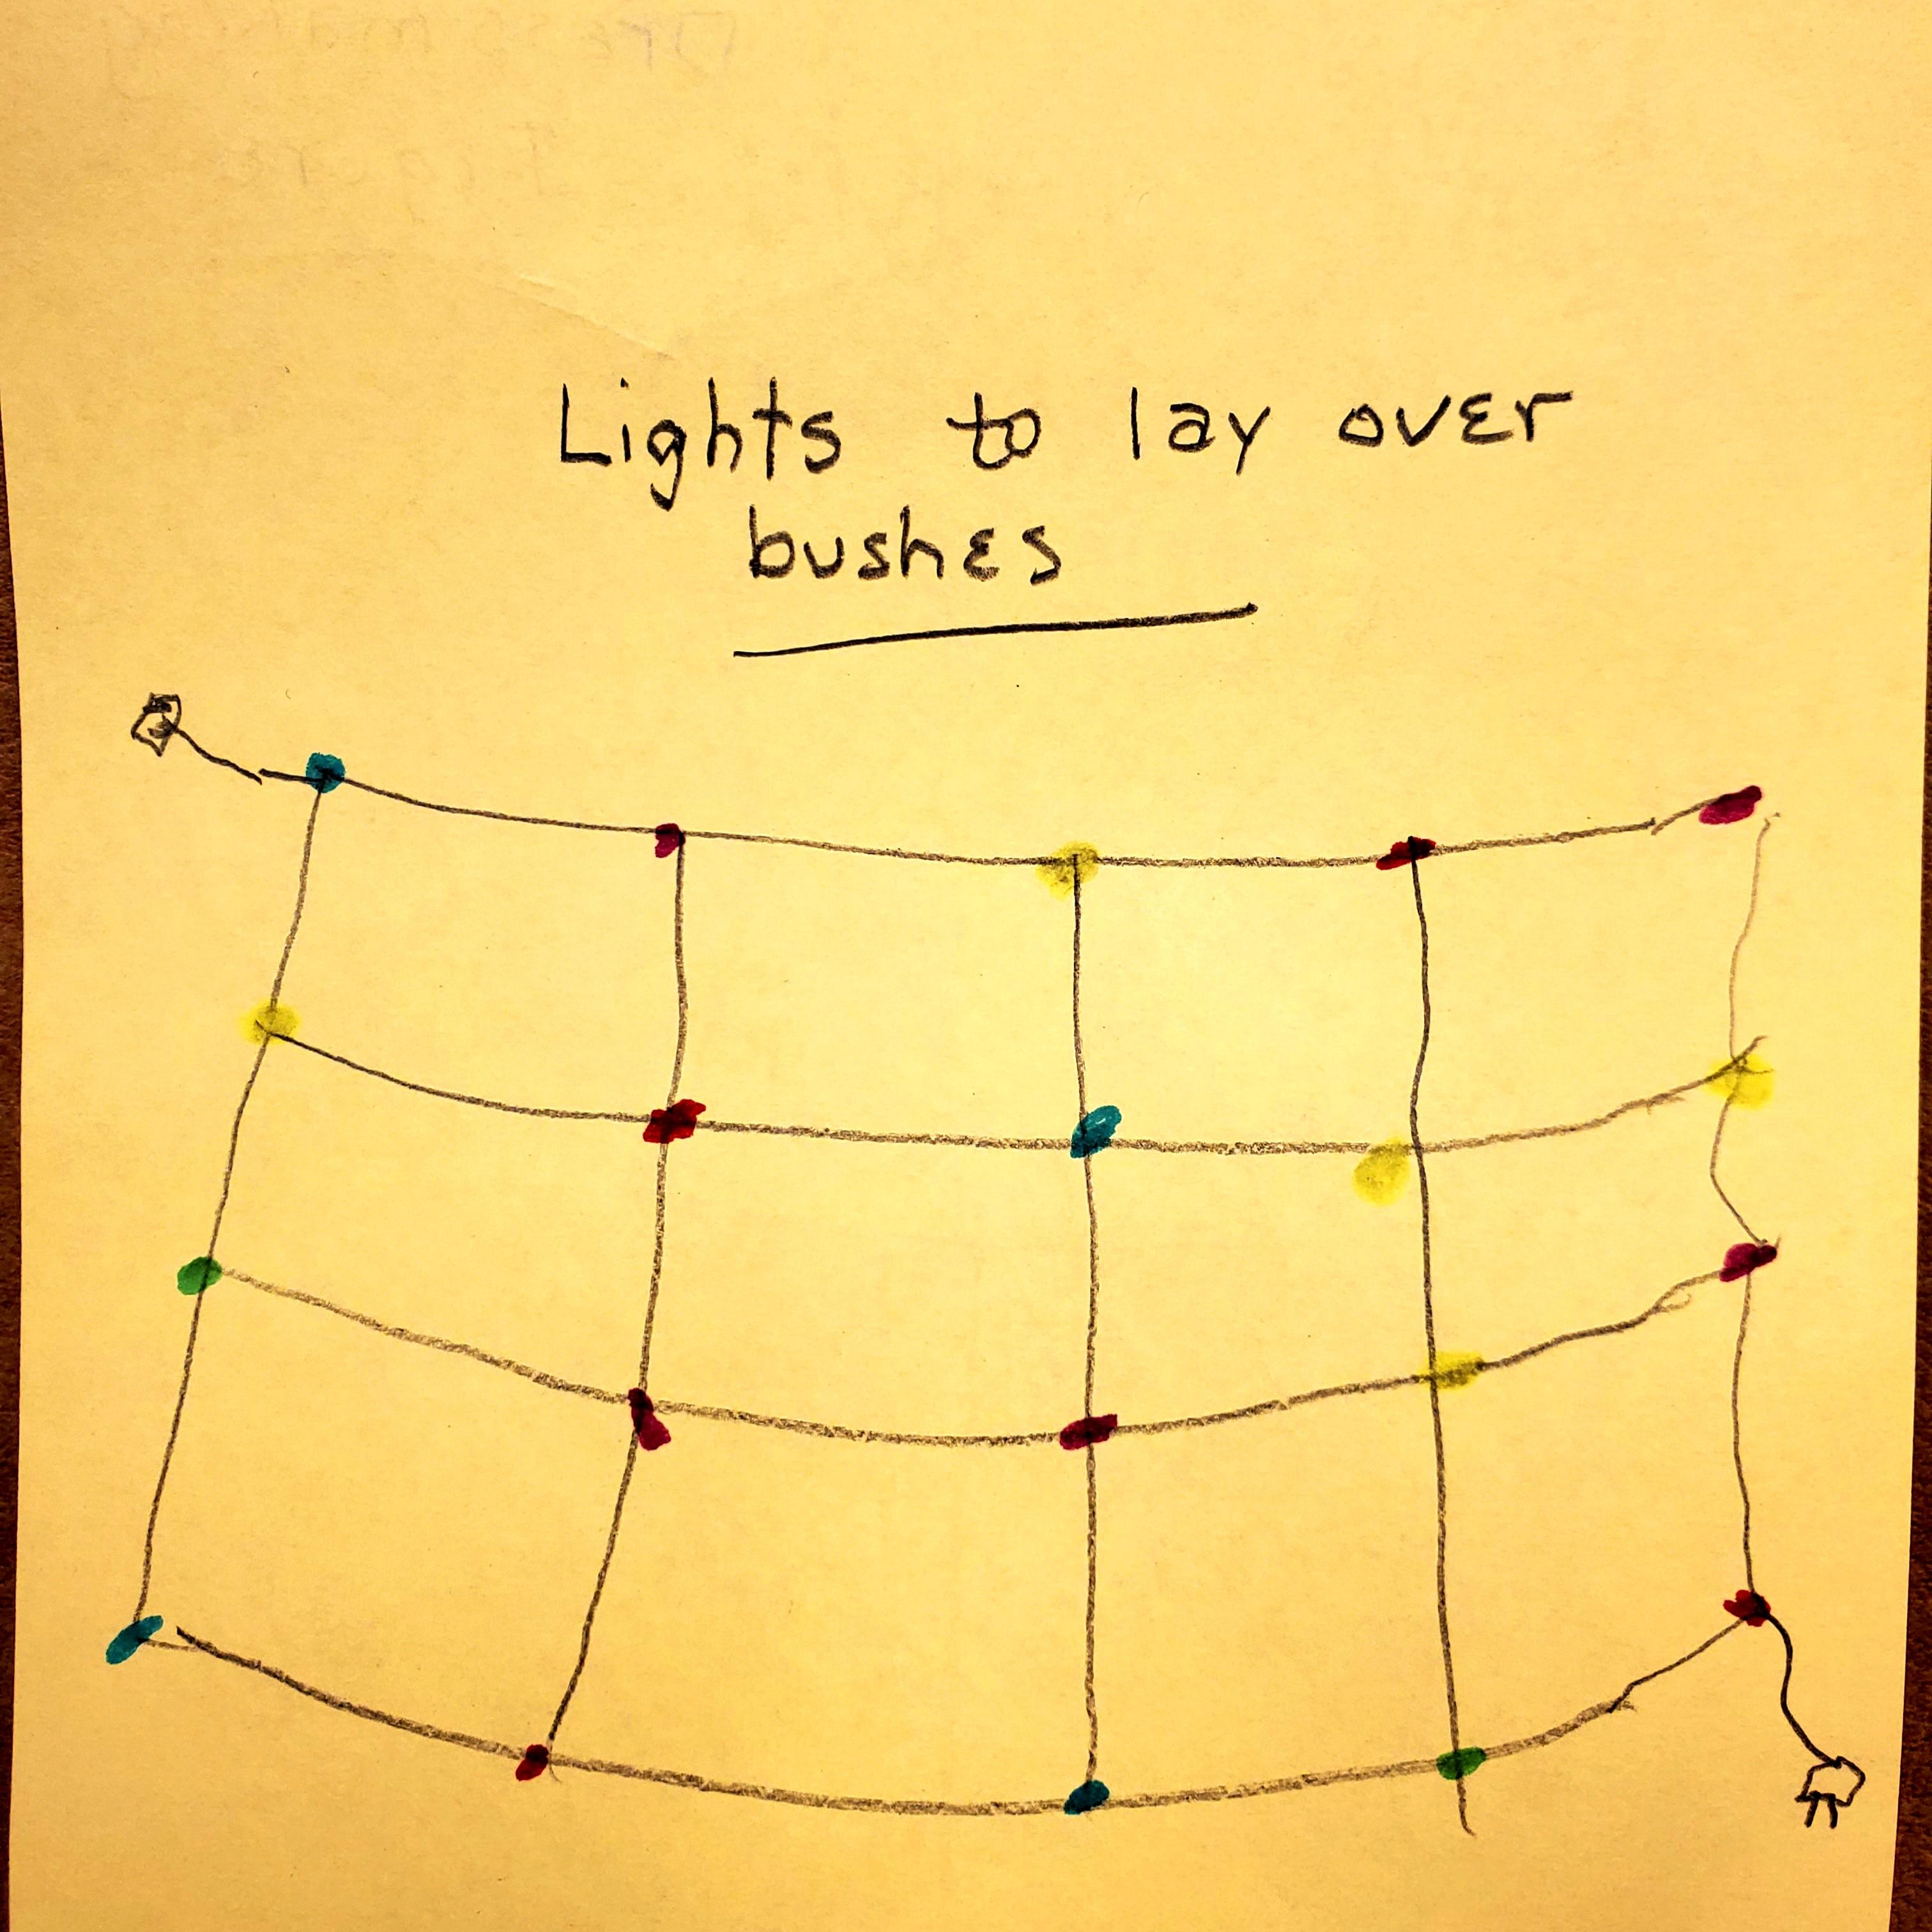 Lights to lay over
bushes